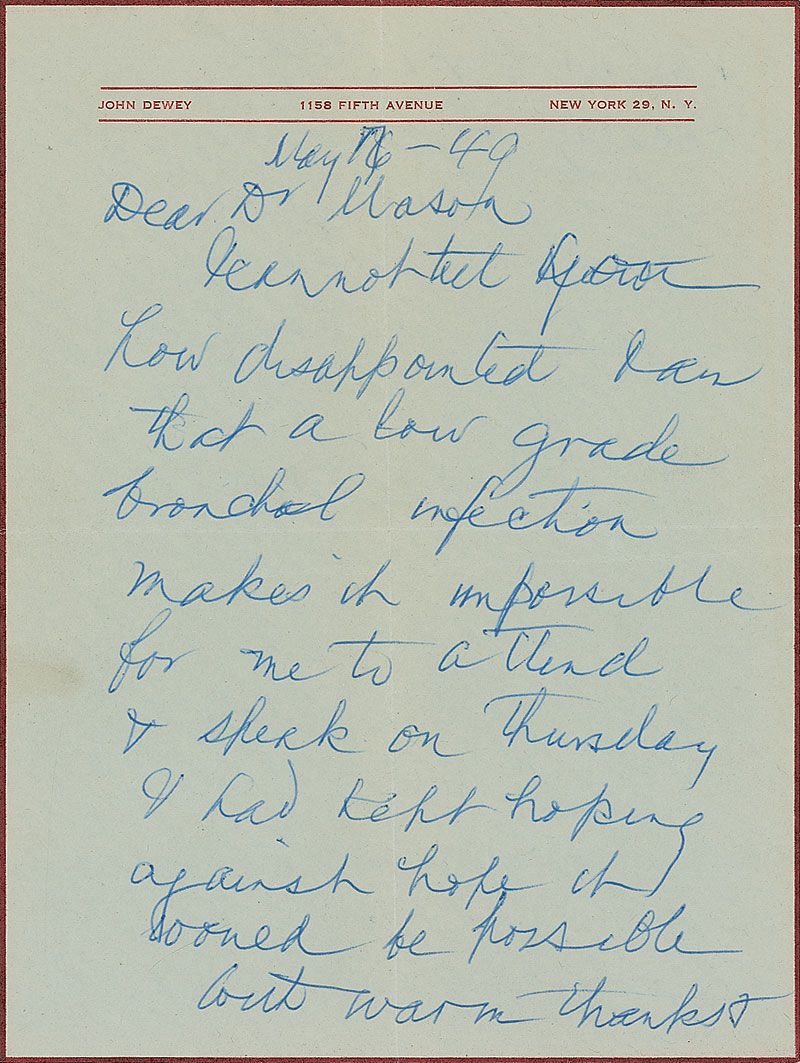 JOHN DEWEY 1158 FIFTH AVENUE NEW YORK 29, N. Y.
May 16 – 49
Dear Dr Mason
I cannot tell you
how disappointed I am
that a low grade
bronchial infection
makes it impossible
for me to attend
& speak on Thursday
I had kept hoping
against hope it
would be possible
With warm thanks &